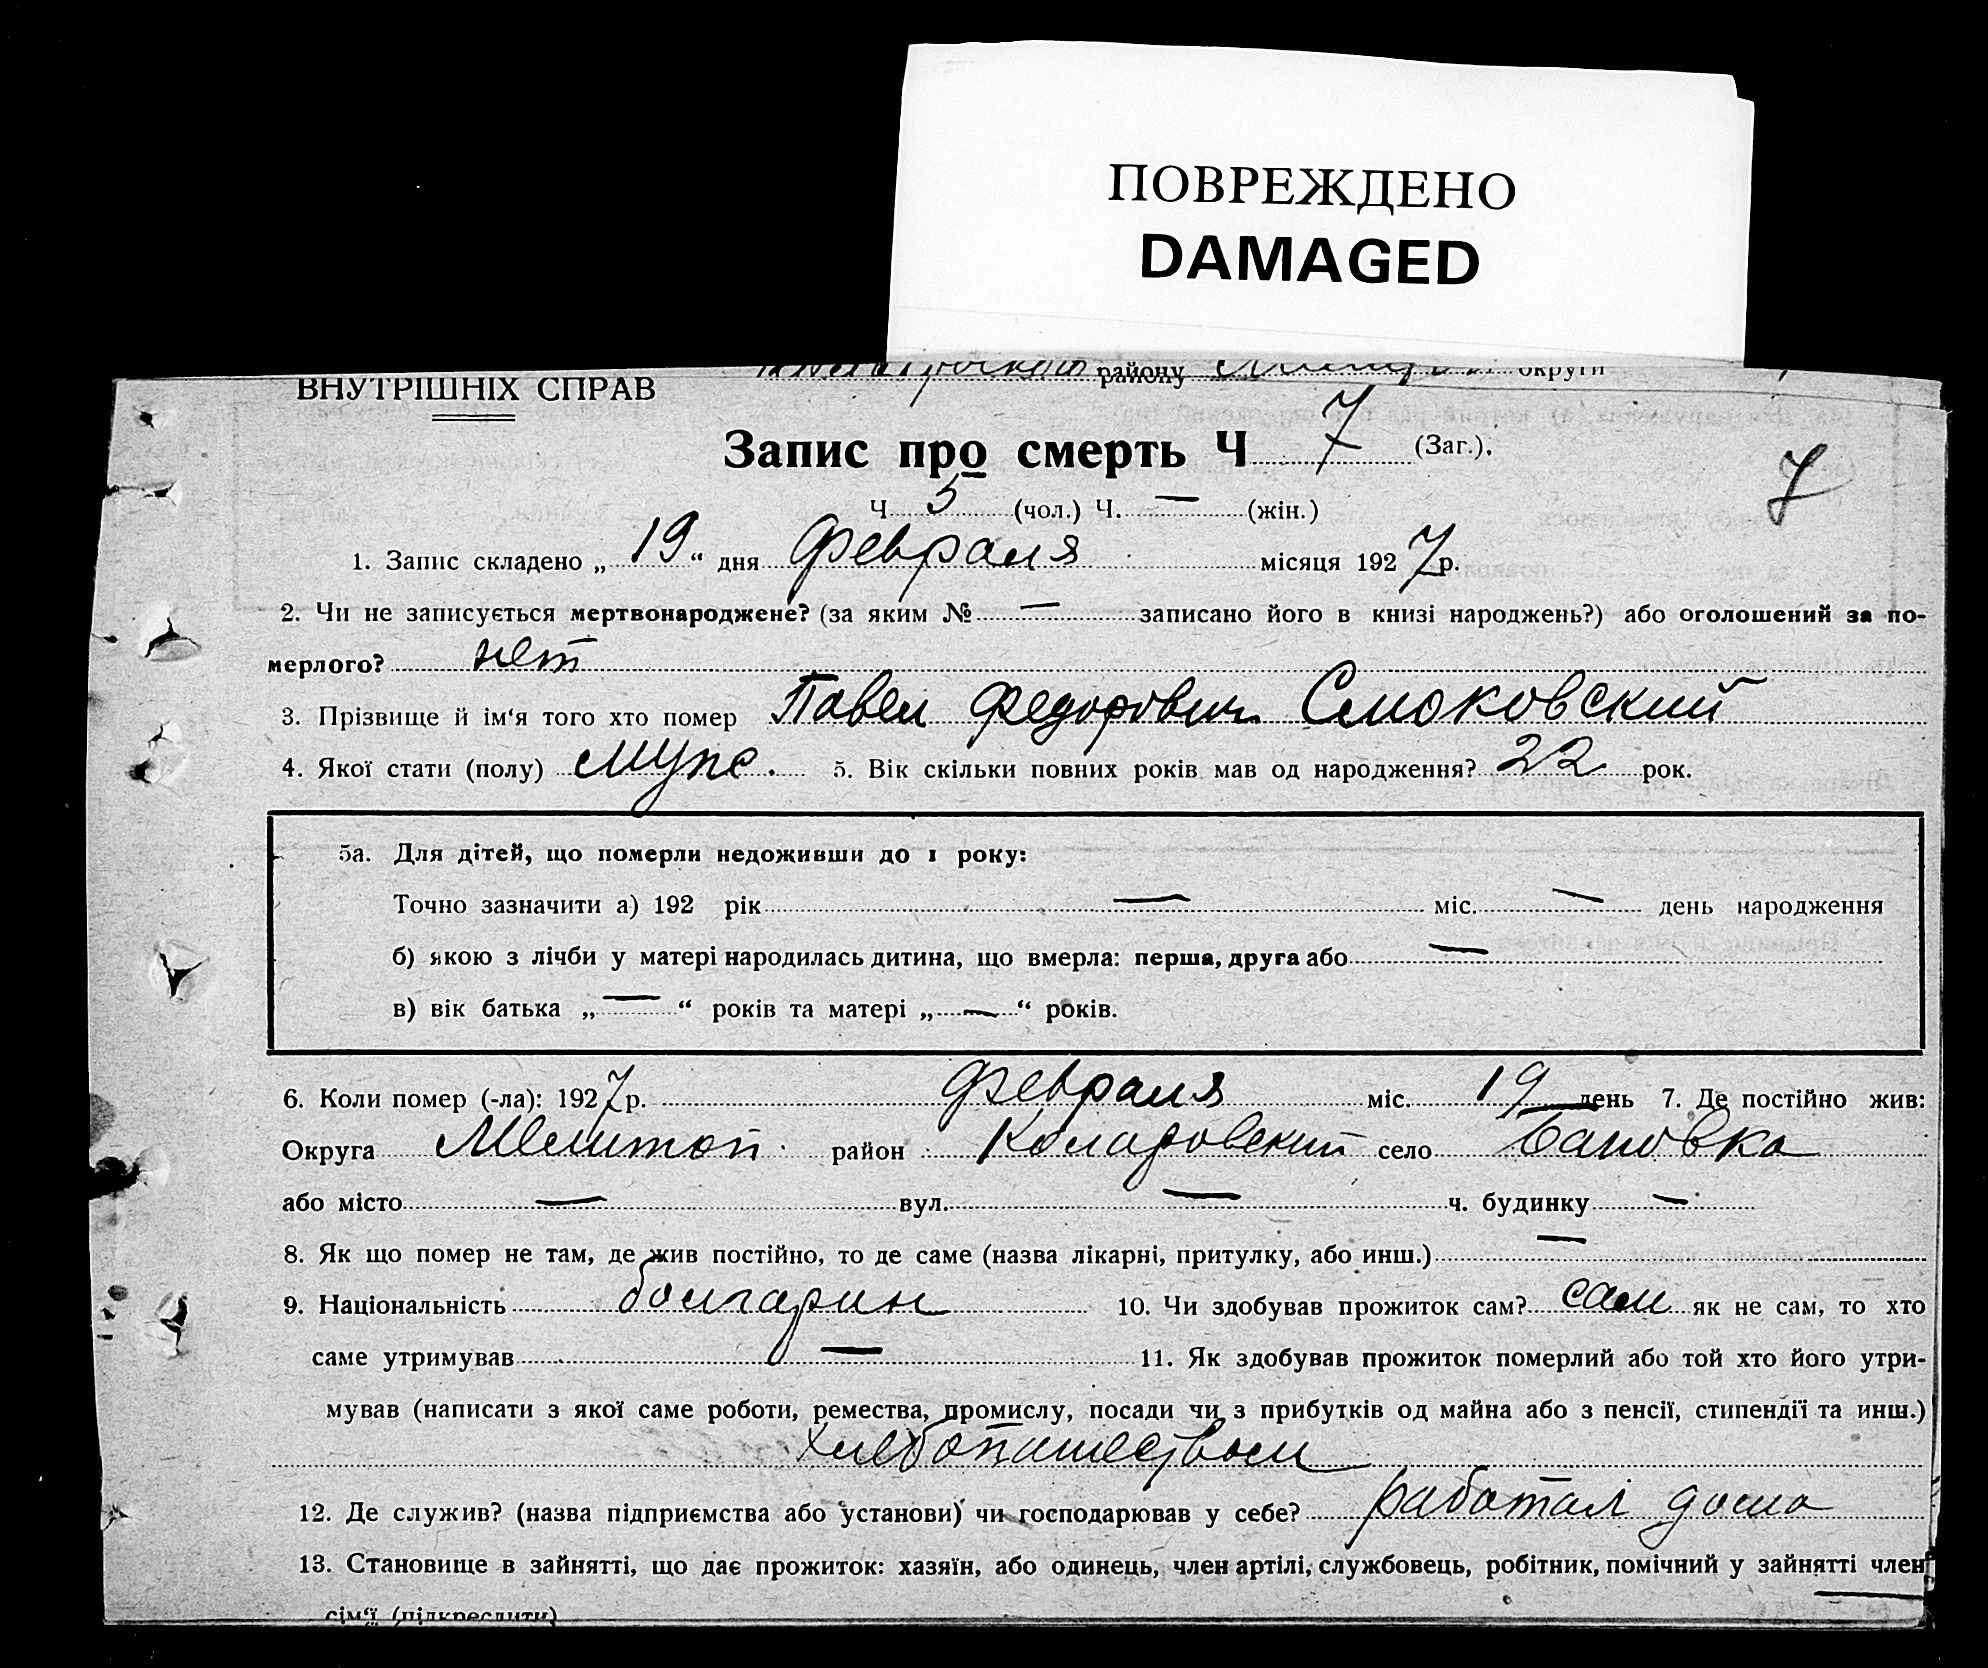 ПОВРЕЖДЕНО
DAMAGED
району округи
ВНУТРІШНІХ СПРАВ
Запис про смерть Ч 7 (Заг.).
7
Ч 5 (чол.) Ч. — (жін.)
1. Запис складено „ 19 “ дня февраля місяця 1927 р.
2. Чи не записується мертвонароджене? (за яким № — записано його в книзі народжень?) або оголошений за по-
мерлого? нет
3. Прізвище й ім'я того хто помер Павел Федорович Смоковский
4. Якої стати (полу) муж. 5. Вік скільки повних років мав од народження? 22 рок.
5а. Для дітей, що померли недоживши до 1 року:
Точно зазначити а) 192 рік — міс. — день народження
б) якою з лічби у матері народилась дитина, що вмерла: перша, друга або —
в) вік батька „ — “ років та матері „ — “ років.
6. Коли помер (-ла): 1927 р. февраля міс. 19 день 7. Де постійно жив:
Округа Мелитоп район Коларовский село Бановка
або місто — вул. — ч. будинку —
8. Як що помер не там, де жив постійно, то де саме (назва лікарні, притулку, або инш.) —
9. Національність болгарин 10. Чи здобував прожиток сам? сам як не сам, то хто
саме утримував — 11. Як здобував прожиток померлий або той хто його утри-
мував (написати з якої саме роботи, ремества, промислу, посади чи з прибутків од майна або з пенсії, стипендії та инш.)
хлебопашеством
12. Де служив? (назва підприємства або установи) чи господарював у себе? работал дома
13. Становище в зайнятті, що дає прожиток: хазяїн, або одинець, член артілі, службовець, робітник, помічний у зайнятті член
сім'ї (підкреслити)